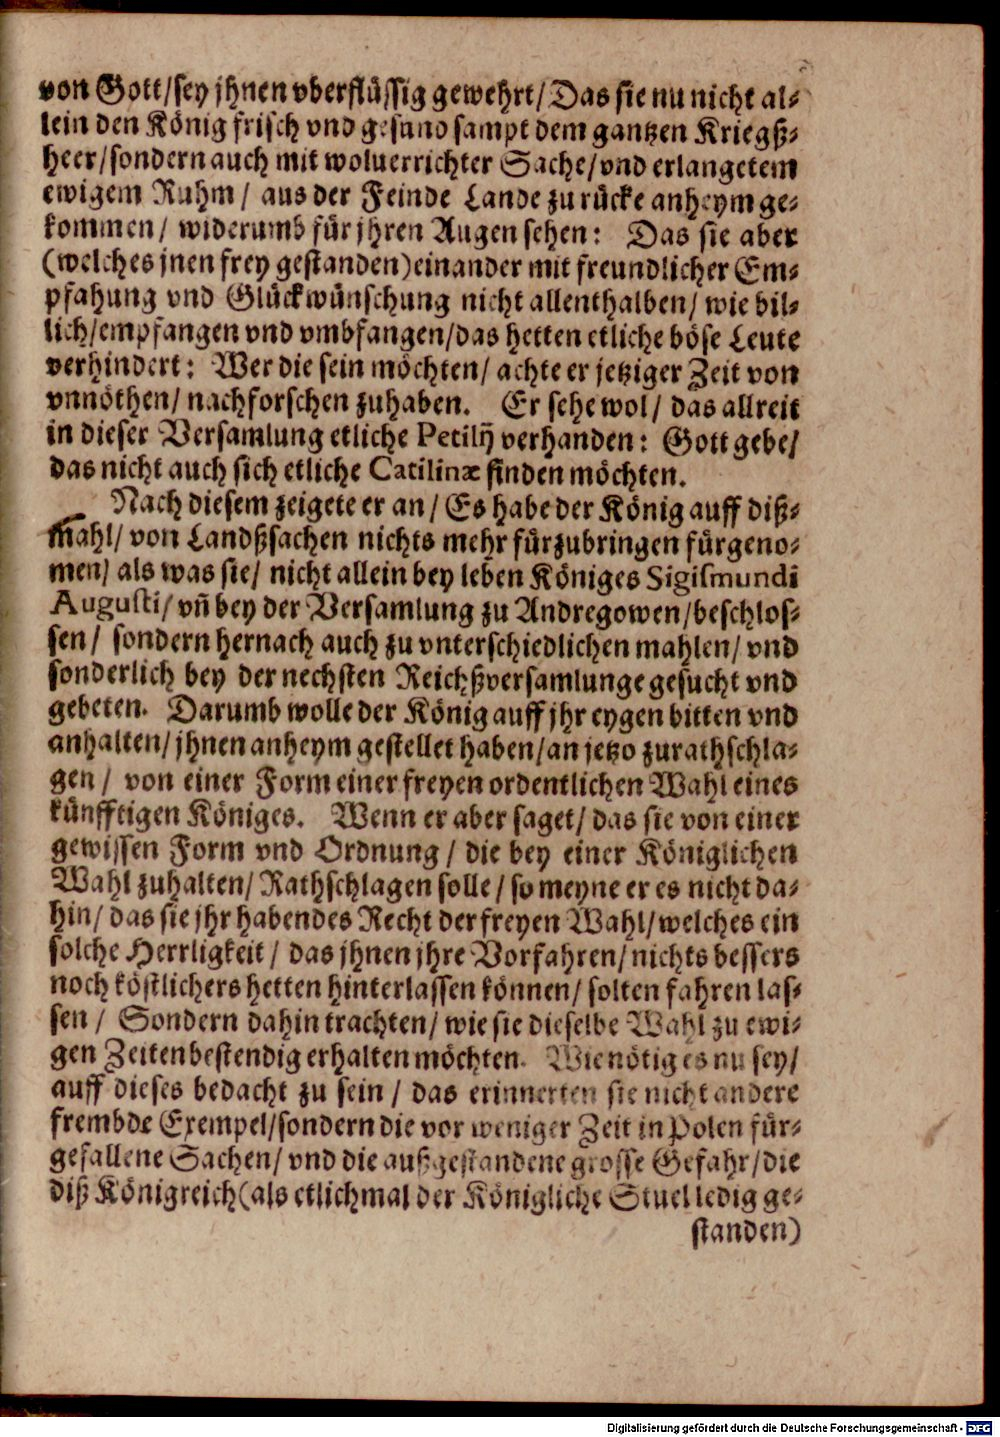 von Gott/sey jhnen vberflüssig gewehrt/Das sie nu nicht al-
lein den König frisch vnd gesund sampt dem gantzen Kriegß-
heer/sondern auch mit woluerrichter Sache/vnd erlangetem
ewigem Ruhm/ aus der Feinde Lande zu rücke anheym ge-
kommen/ widerumb für jhren Augen sehen: Das sie aber
(welches jnen frey gestanden) einander mit freundlicher Em-
pfahung vnd Glückwünschung nicht allenthalben/ wie bil-
lich/empfangen vnd vmbfangen/das hetten etliche böse Leute
verhindert: Wer die sein möchten/ achte er jetziger Zeit von
vnnöthen/ nachforschen zuhaben. Er sehe wol/ das allreit
in dieser Versamlung etliche Petilij verhanden: Gott gebe/
das nicht auch sich etliche Catilinæ finden möchten.
Nach diesem zeigete er an/ Es habe der König auff diß-
mahl/ von Landßsachen nichts mehr fürzubringen fürgeno-
men/ als was sie/ nicht allein bey leben Königes Sigismundi
Augusti/ vñ bey der Versamlung zu Andregowen/beschlos-
sen/ sondern hernach auch zu vnterschiedlichen mahlen/ vnd
sonderlich bey der nechsten Reichßversamlunge gesucht vnd
gebeten. Darumb wolle der König auff jhr eygen bitten vnd
anhalten/ jhnen anheym gestellet haben/an jetzo zurathschla-
gen/ von einer Form einer freyen ordentlichen Wahl eines
künfftigen Königes. Wenn er aber saget/ das sie von einer
gewissen Form vnd Ordnung/ die bey einer Königlichen
Wahl zuhalten/ Rathschlagen solle/ so meyne er es nicht da-
hin/ das sie jhr habendes Recht der freyen Wahl/welches ein
solche Herrligkeit/ das jhnen jhre Vorfahren/ nichts bessers
noch köstlichers hetten hinterlassen können/ solten fahren las-
sen/ Sondern dahin trachten/ wie sie dieselbe Wahl zu ewi-
gen Zeiten bestendig erhalten möchten. Wie nötig es nu sey/
auff dieses bedacht zu sein/ das erinnerten sie nicht andere
frembde Exempel/sondern die vor weniger Zeit in Polen für-
gefallene Sachen/ vnd die außgestandene grosse Gefahr/die
diß Königreich(als etlichmal der Königliche Stuel ledig ge-
standen)
Digitalisierung gefördert durch die Deutsche Forschungsgemeinschaft - DFG